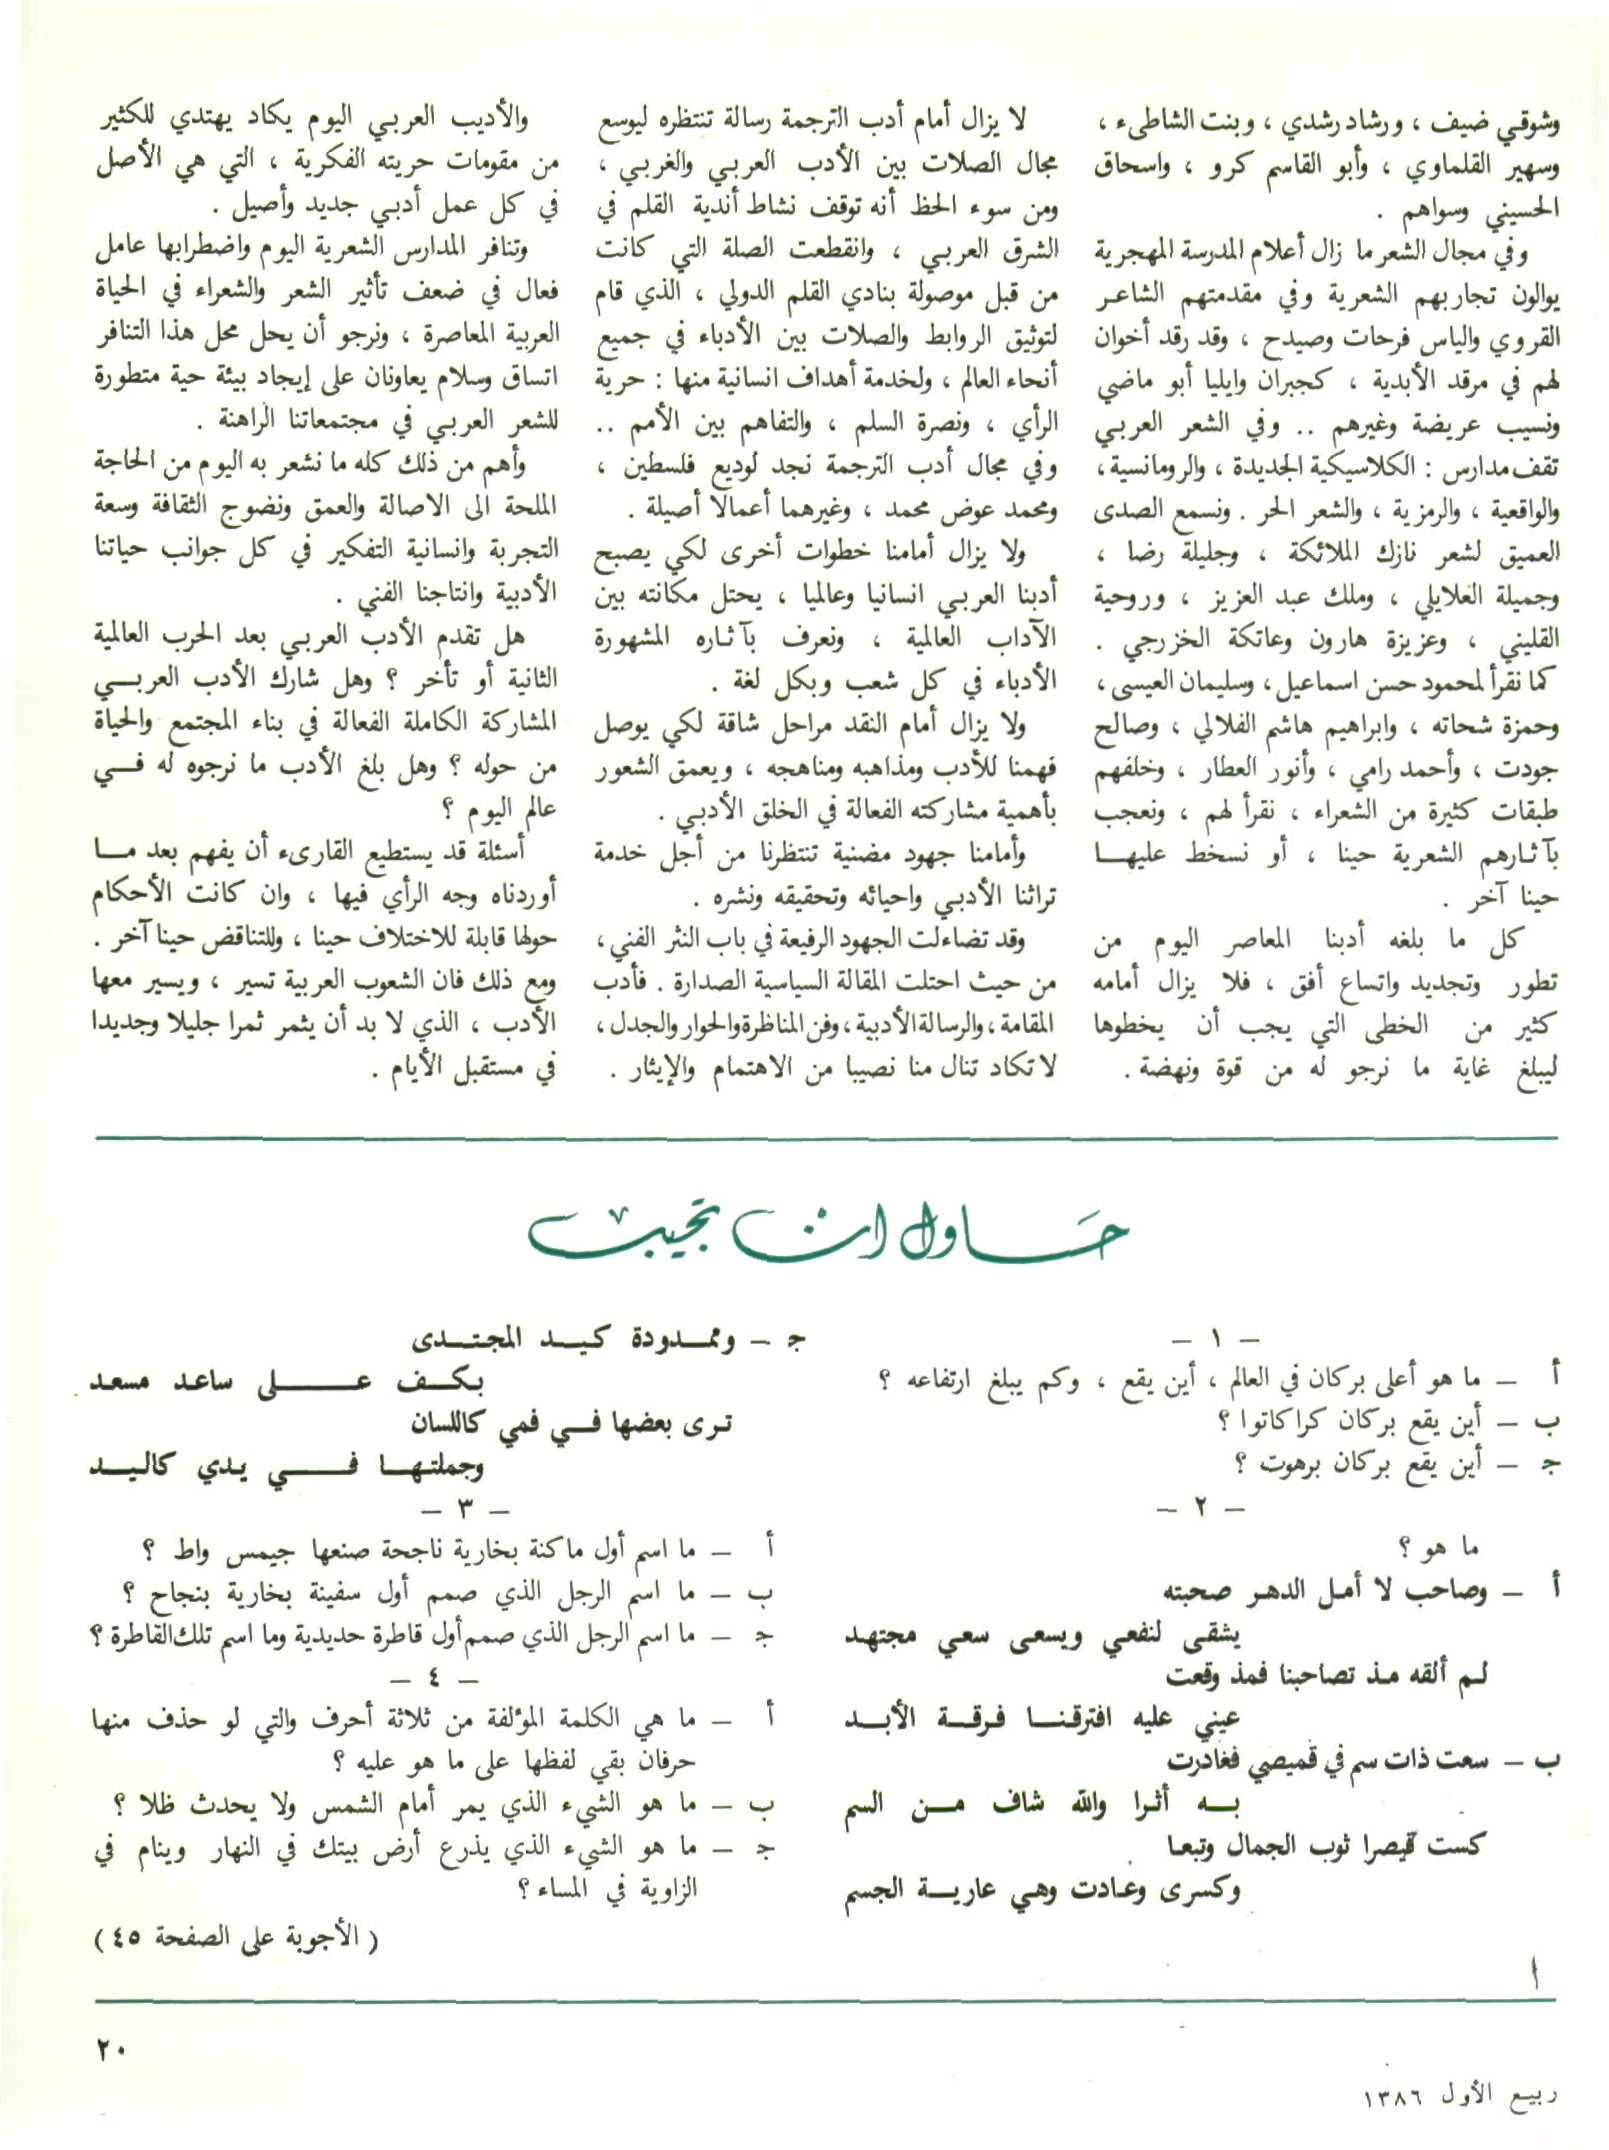 وشوقي ضيف ، ورشاد رشدي ، وبنت الشاطىء ،
وسهير القلماوي ، وأبو القاسم كرو ، واسحاق
الحسيني وسواهم .
وفي مجال الشعر ما زال أعلام المدرسة المهجرية
يوالون تجاربهم الشعرية وفي مقدمتهم الشاعر
القروي والياس فرحات وصيدح ، وقد رقد أخوان
لهم في مرقد الأبدية ، كجبران وايليا أبو ماضي
ونسيب عريضة وغيرهم .. وفي الشعر العربي
تقف مدارس : الكلاسيكية الجديدة ، والرومانسية ،
والواقعية ، والرمزية ، والشعر الحر . ونسمع الصدى
العميق لشعر نازك الملائكة ، وجليلة رضا ،
وجميلة العلايلي ، وملك عبد العزيز ، وروحية
القليني ، وعزيزة هارون وعاتكة الخزرجي .
كما نقرأ لمحمود حسن اسماعيل ، وسليمان العيسى ،
وحمزة شحاته ، وابراهيم هاشم الفلالي ، وصالح
جودت ، وأحمد رامي ، وأنور العطار ، وخلفهم
طبقات كثيرة من الشعراء ، نقرأ لهم ، ونعجب
بآثارهم الشعرية حينا ، أو نسخط عليها
حينا آخر .
كل ما بلغه أدبنا المعاصر اليوم من
تطور وتجديد واتساع أفق ، فلا يزال أمامه
كثير من الخطى التي يجب أن يخطوها
ليبلغ غاية ما نرجو له من قوة ونهضة .
لا يزال أمام أدب الترجمة رسالة تنتظره ليوسع
مجال الصلات بين الأدب العربي والغربي ،
ومن سوء الحظ أنه توقف نشاط أندية القلم في
الشرق العربي ، وانقطعت الصلة التي كانت
من قبل موصولة بنادي القلم الدولي ، الذي قام
لتوثيق الروابط والصلات بين الأدباء في جميع
أنحاء العالم ، ولخدمة أهداف انسانية منها : حرية
الرأي ، ونصرة السلم ، والتفاهم بين الأمم ..
وفي مجال أدب الترجمة نجد لوديع فلسطين ،
ومحمد عوض محمد ، وغيرهما أعمالا أصيلة .
ولا يزال أمامنا خطوات أخرى لكي يصبح
أدبنا العربي انسانيا وعالميا ، يحتل مكانته بين
الآداب العالمية ، ونعرف بآثاره المشهورة
الأدباء في كل شعب وبكل لغة .
ولا يزال أمام النقد مراحل شاقة لكي يوصل
فهمنا للأدب ومذاهبه ومناهجه ، ويعمق الشعور
بأهمية مشاركته الفعالة في الخلق الأدبي .
وأمامنا جهود مضنية تنتظرنا من أجل خدمة
تراثنا الأدبي واحيائه وتحقيقه ونشره .
وقد تضاءلت الجهود الرفيعة في باب النثر الفني ،
من حيث احتلت المقالة السياسية الصدارة . فأدب
المقامة ، والرسالة الأدبية ، وفن المناظرة والحوار والجدل ،
لا تكاد تنال منا نصيبا من الاهتمام والإيثار .
والأديب العربي اليوم يكاد يهتدي للكثير
من مقومات حريته الفكرية ، التي هي الأصل
في كل عمل أدبي جديد وأصيل .
وتنافر المدارس الشعرية اليوم واضطرابها عامل
فعال في ضعف تأثير الشعر والشعراء في الحياة
العربية المعاصرة ، ونرجو أن يحل محل هذا التنافر
اتساق وسلام يعاونان على إيجاد بيئة حية متطورة
للشعر العربي في مجتمعاتنا الراهنة .
وأهم من ذلك كله ما نشعر به اليوم من الحاجة
الملحة الى الاصالة والعمق ونضوج الثقافة وسعة
التجربة وانسانية التفكير في كل جوانب حياتنا
الأدبية وانتاجنا الفني .
هل تقدم الأدب العربي بعد الحرب العالمية
الثانية أو تأخر ؟ وهل شارك الأدب العربي
المشاركة الكاملة الفعالة في بناء المجتمع والحياة
من حوله ؟ وهل بلغ الأدب ما نرجوه له في
عالم اليوم ؟
أسئلة قد يستطيع القارىء أن يفهم بعد ما
أوردناه وجه الرأي فيها ، وان كانت الأحكام
حولها قابلة للاختلاف حينا ، وللتناقض حينا آخر .
ومع ذلك فان الشعوب العربية تسير ، ويسير معها
الأدب ، الذي لا بد أن يثمر ثمرا جليلا وجديدا
في مستقبل الأيام .
حاول ان تجيب
– ١ –
أ – ما هو أعلى بركان في العالم ، أين يقع ، وكم يبلغ ارتفاعه ؟
ب – أين يقع بركان كراكاتوا ؟
ج – أين يقع بركان برهوت ؟
– ٢ –
ما هو ؟
أ – وصاحب لا أمل الدهر صحبته
يشقى لنفعي ويسعى سعي مجتهد
لم ألقه مذ تصاحبنا فمذ وقعت
عيني عليه افترقنا فرقة الأبد
ب – سعت ذات سم في قميصي فغادرت
به أثرا والله شاف من السم
كست قيصرا ثوب الجمال وتبعا
وكسرى وعادت وهي عارية الجسم
ج – وممدودة كيد المجتدى
بكف على ساعد مسعد
ترى بعضها في فمي كاللسان
وجملتها في يدي كاليد
– ٣ –
أ – ما اسم أول ماكنة بخارية ناجحة صنعها جيمس واط ؟
ب – ما اسم الرجل الذي صمم أول سفينة بخارية بنجاح ؟
ج – ما اسم الرجل الذي صمم أول قاطرة حديدية وما اسم تلك القاطرة ؟
– ٤ –
أ – ما هي الكلمة المؤلفة من ثلاثة أحرف والتي لو حذف منها
حرفان بقي لفظها على ما هو عليه ؟
ب – ما هو الشيء الذي يمر أمام الشمس ولا يحدث ظلا ؟
ج – ما هو الشيء الذي يذرع أرض بيتك في النهار وينام في
الزاوية في المساء ؟
( الأجوبة على الصفحة ٤٥ )
٢٠
ربيع الأول ١٣٨٦